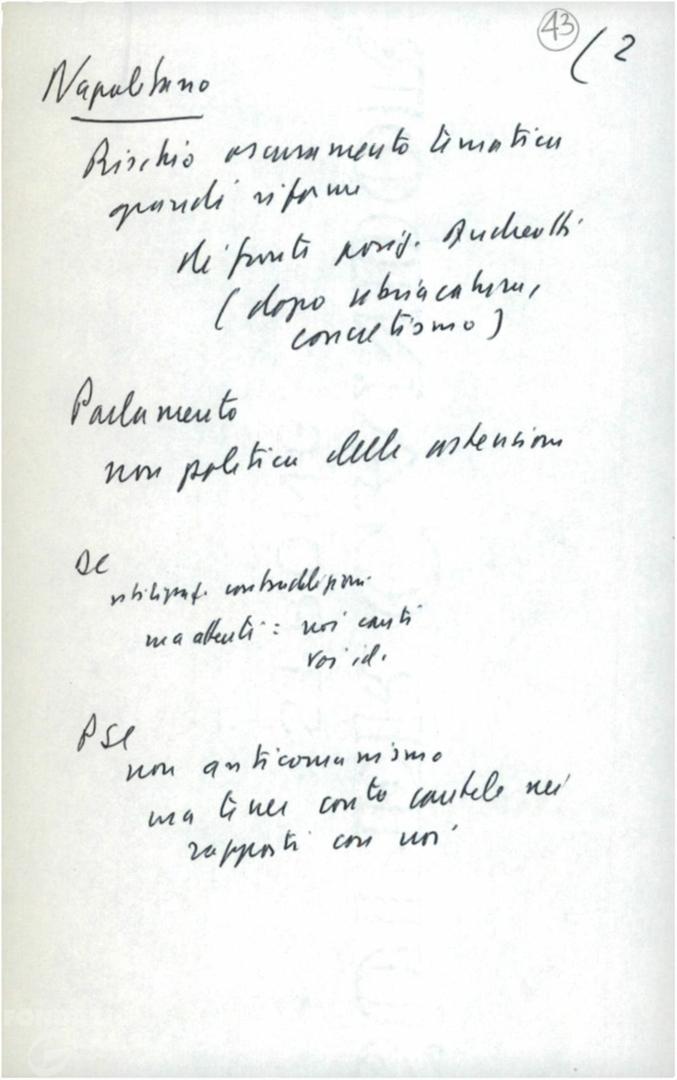 43
( 2
Napolitano
Rischio oscuramento tematica
grandi riforme
di fronte posiz. Andreotti
( dopo ubriacatura,
concretismo )
Parlamento
non politica delle astensioni
DC
contraddizioni.
ma attenti : noi cauti
voi id.
PSI
non anticomunismo
ma tener conto cautele nei
rapporti con noi